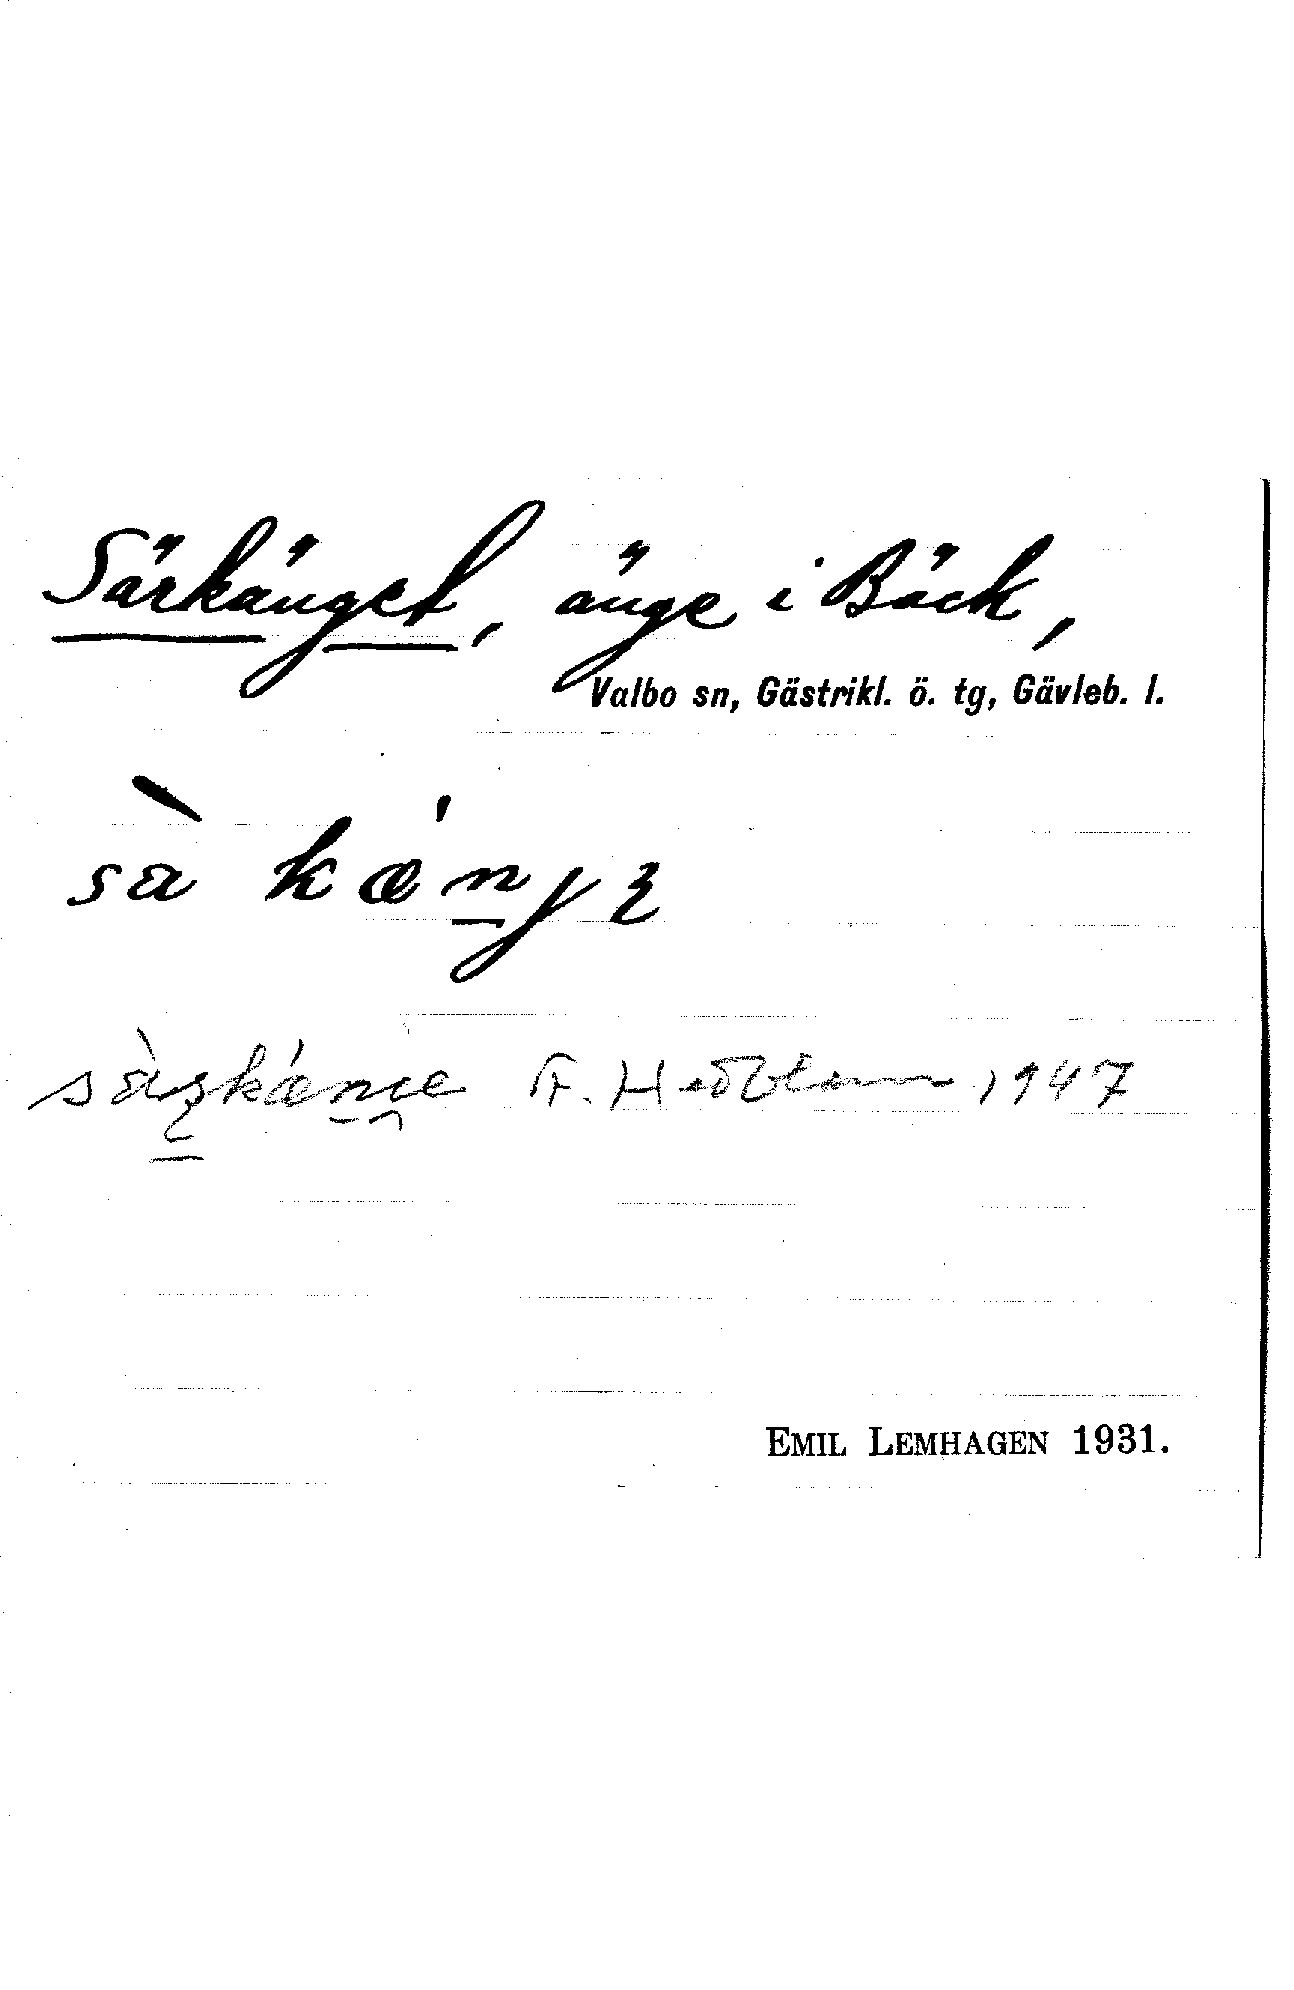 Särkänget, änge i Bäck,
Valbo sn, Gästrikl. ö. tg, Gävleb. l.
F. Hedblom 1947
EMIL LEMHAGEN 1931.